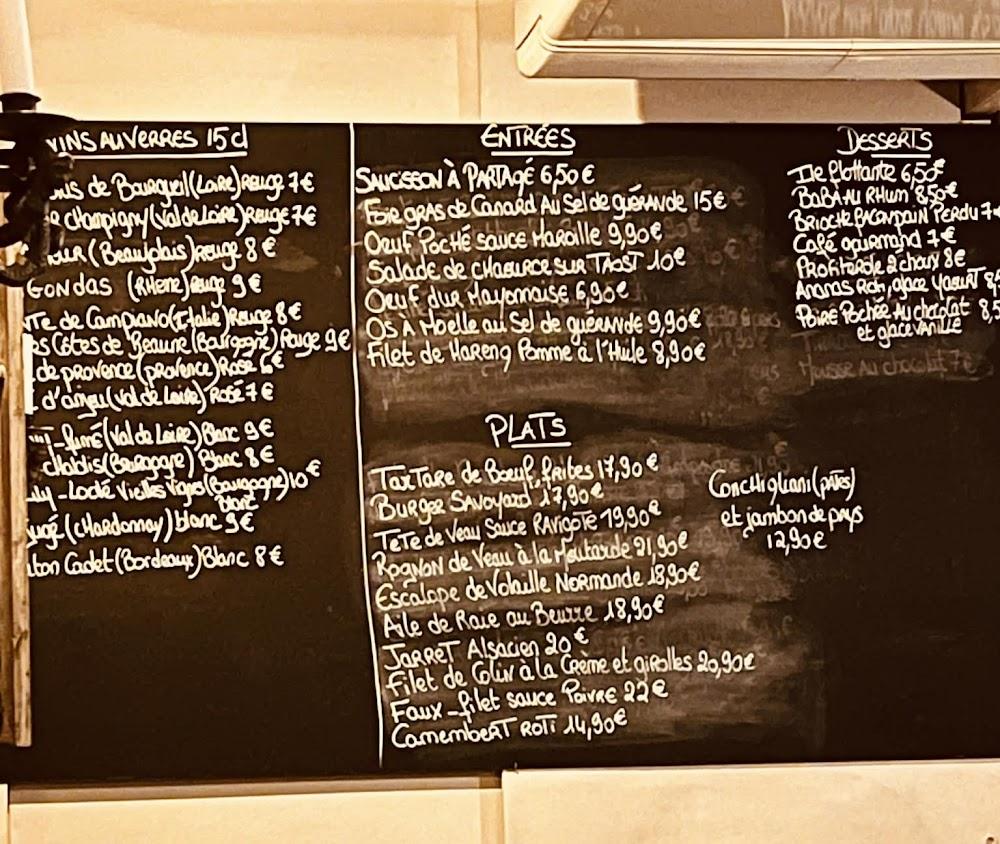 VINS AU VERRES 15cl
de Bourgueil (Loire) Rouge 7€
Champigny (Val de Loire) Rouge 7€
(Beaujolais) Rouge 8€
GONDAS (RHone) Rouge 9€
de Campiano (Italie) Rouge 8€
es Côtes de Beaune (Bourgogne) Rouge 9€
de provence (provence) Rosé 6€
d'anjou (Val de Loire) Rosé 7€
-fumé (Val de Loire) Blanc 9€
chablis (Bourgogne) Blanc 8€
-Loché Vieilles Vignes (Bourgogne) 10€
blanc
(CHardonnay) blanc 9€
ton Cadet (Bordeaux) Blanc 8€
ENTRÉES
SAUCISSON À PARTAGÉ 6,50€
Foie gras de Canard Au Sel de guérande 15€
Oeuf Poché sauce Maroille 9,90€
Salade de CHAOURCE sur TAOST 10€
Oeuf dur Mayonnaise 6,90€
Os À Moelle au Sel de guérande 9,90€
Filet de Hareng Pomme à l'Huile 8,90€
PLATS
TaRTare de Boeuf, frites 17,90€
Burger Savoyard 17,90€
TeTe de Veau Sauce Ravigote 19,90€
Rognon de Veau à la Moutarde 21,90€
Escalope de Volaille Normande 18,90€
Aile de Raie au Beurre 18,90€
JARRET Alsacien 20€
Filet de Colin à la Crème et girolles 20,90€
Faux-filet sauce Poivre 22€
CamemberT RoTi 14,90€
Conchigliani (pâTes)
et jambon de pays
12,90€
DESSERTS
Ile flottante 6,50€
BaBa au RHum 8,50€
Brioche façon Pain Perdu 7
Café gourmand 7€
Profiterole 2 choux 8€
Ananas Roti, glace Yaourt 8,5
Poire Pochée Au chocolat 8,5
et glace vanille
Mousse Au chocolat 7€